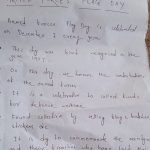 ARMED FORCES FLAG DAY
Armed forces Flag Day is celebrated
on December 7 every year
This day was been recognised in the
year 1949.
On this day we honour the contribution
of the armed forces
It is a celebration to collect funds
for defence welfare
Found collection by selling flags, badges
stickers etc
It is day to commemorate the martyrs
who